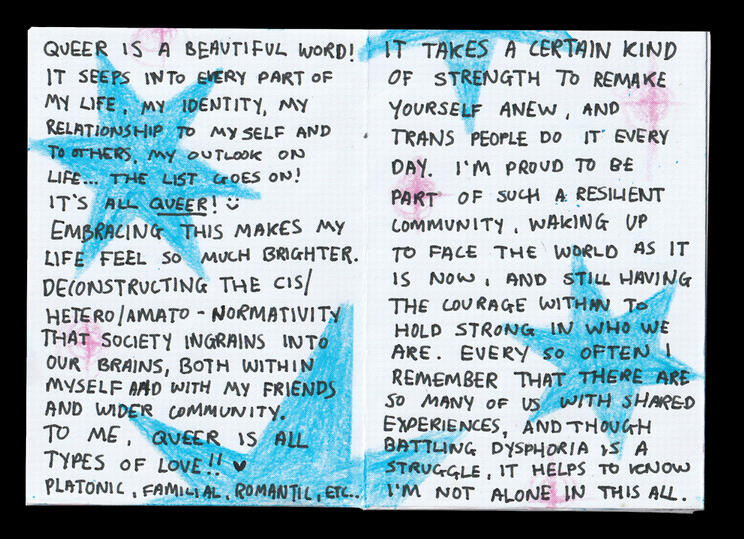 QUEER IS A BEAUTIFUL WORD!
IT SEEPS INTO EVERY PART OF
MY LIFE, MY IDENTITY, MY
RELATIONSHIP TO MYSELF AND
TO OTHERS, MY OUTLOOK ON
LIFE... THE LIST GOES ON!
IT'S ALL QUEER! :)
EMBRACING THIS MAKES MY
LIFE FEEL SO MUCH BRIGHTER.
DECONSTRUCTING THE CIS/
HETERO/AMATO-NORMATIVITY
THAT SOCIETY INGRAINS INTO
OUR BRAINS, BOTH WITHIN
MYSELF AND WITH MY FRIENDS
AND WIDER COMMUNITY.
TO ME, QUEER IS ALL
TYPES OF LOVE!! ♥
PLATONIC, FAMILIAL, ROMANTIC, ETC..
IT TAKES A CERTAIN KIND
OF STRENGTH TO REMAKE
YOURSELF ANEW, AND
TRANS PEOPLE DO IT EVERY
DAY. I'M PROUD TO BE
PART OF SUCH A RESILIENT
COMMUNITY, WAKING UP
TO FACE THE WORLD AS IT
IS NOW, AND STILL HAVING
THE COURAGE WITHIN TO
HOLD STRONG IN WHO WE
ARE. EVERY SO OFTEN I
REMEMBER THAT THERE ARE
SO MANY OF US WITH SHARED
EXPERIENCES, AND THOUGH
BATTLING DYSPHORIA IS A
STRUGGLE, IT HELPS TO KNOW
I'M NOT ALONE IN THIS ALL.